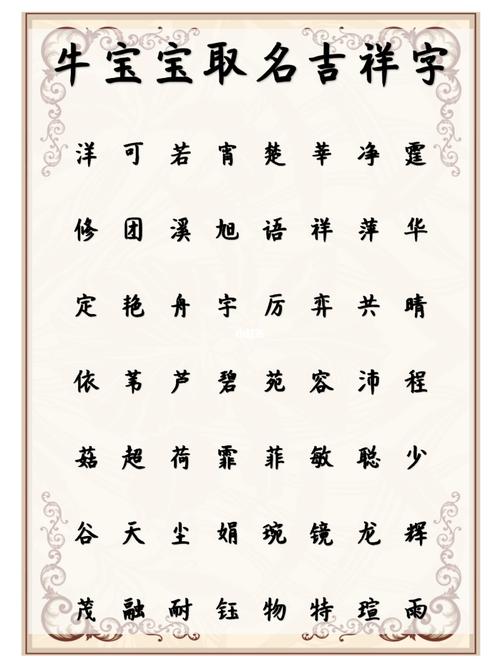 牛宝宝取名吉祥字
洋 可 若 宵 楚 莘 净 霆
修 团 溪 旭 语 祥 萍 华
定 艳 舟 宇 厉 弈 共 晴
小红书
依 苇 芦 碧 苑 容 沛 程
菇 超 荷 霏 菲 敏 聪 少
谷 天 尘 娟 琬 镜 龙 辉
茂 融 耐 钰 物 特 瑄 雨